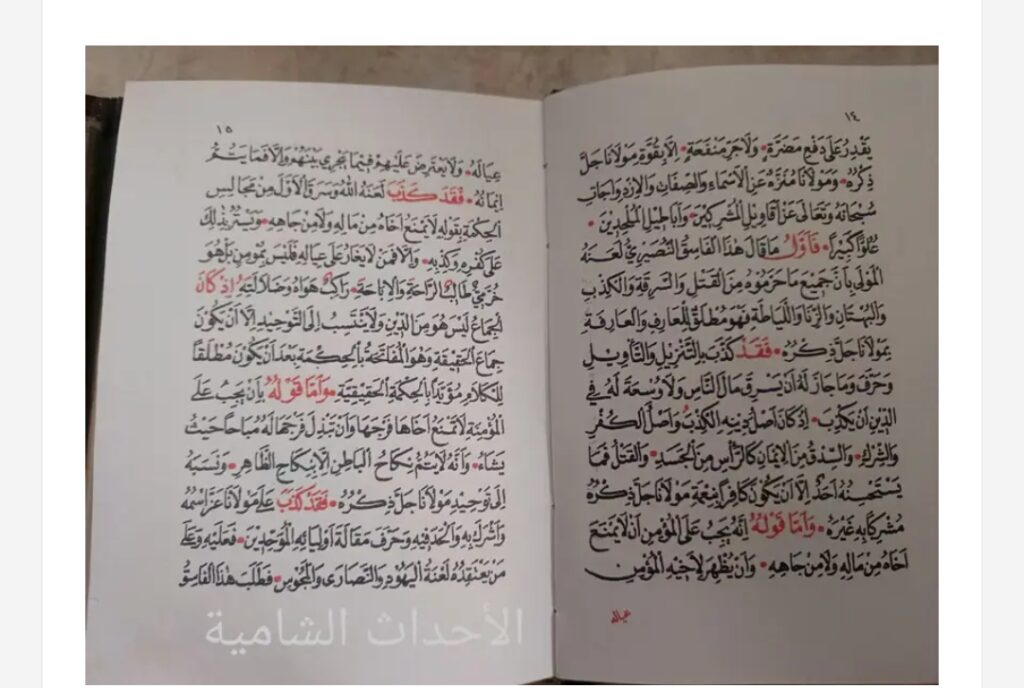 ١٤
يَقْدِرُ عَلَى دَفْعِ مَضَرَّةٍ • وَلَا جَرِّ مَنْفَعَةٍ • إِلَّا بِقُوَّةِ مَوْلَانَا جَلَّ
ذِكْرُهُ • وَمَوْلَانَا مُنَزَّهٌ عَنِ الْأَسْمَاءِ وَالصِّفَاتِ وَالْإِزْدِوَاجَاتِ
سُبْحَانَهُ وَتَعَالَى عَنْ أَقَاوِيلِ الْمُشْرِكِينَ • وَأَبَاطِيلِ الْمُلْحِدِينَ •
عُلُوًّا كَبِيرًا • فَأَوَّلُ مَا قَالَ هٰذَا الْفَاسِقُ النُّصَيْرِيُّ لَعَنَهُ
الْمَوْلَى بِأَنَّ جَمِيعَ مَا حَرَّمُوهُ مِنَ الْقَتْلِ وَالسَّرِقَةِ وَالْكَذِبِ
وَالْبُهْتَانِ وَالزِّنَا وَاللِّيَاطَةِ فَهُوَ مُطْلَقٌ لِلْعَارِفِ وَالْعَارِفَةِ
بِمَوْلَانَا جَلَّ ذِكْرُهُ • فَقَدْ كَذَبَ بِالتَّنْزِيلِ وَالتَّأْوِيلِ
وَحَرَّفَ وَمَا جَازَ لَهُ أَنْ يَسْرِقَ مَالَ النَّاسِ وَلَا وُسْعَةَ لَهُ فِي
الدِّينِ أَنْ يَكْذِبَ • إِذْ كَانَ أَصْلُ دِينِهِ الْكَذِبُ وَأَصْلُ الْكُفْرِ
وَالشِّرْكِ • وَالسِّدْقُ مِنَ الْإِيمَانِ كَالرَّأْسِ مِنَ الْجَسَدِ • وَالْقَتْلُ فَمَا
يَسْتَحْسِنُهُ أَحَدٌ إِلَّا أَنْ يَكُونَ كَافِرًا بِنِعْمَةِ مَوْلَانَا جَلَّ ذِكْرُهُ
مُشْرِكًا بِهِ غَيْرَهُ • وَأَمَّا قَوْلُهُ إِنَّهُ يَجِبُ عَلَى الْمُؤْمِنِ أَنْ لَا يَمْنَعَ
أَخَاهُ مِنْ مَالِهِ وَلَا مِنْ جَاهِهِ • وَأَنْ يُظْهِرَ لِأَخِيهِ الْمُؤْمِنِ
عياله
١٥
عِيَالَهُ • وَلَا يَعْتَرِضَ عَلَيْهِمْ فِيمَا يَجْرِي بَيْنَهُمْ وَإِلَّا فَمَا يَتُمُّ
إِيمَانُهُ • فَقَدْ كَذَبَ لَعَنَهُ اللهُ وَسَرَقَ الْأَوَّلَ مِنْ مَجَالِسِ
الْحِكْمَةِ بِقَوْلِهِ لَا يَمْنَعْ أَخَاهُ مِنْ مَالِهِ وَلَا مِنْ جَاهِهِ • وَيَسْتُرُ بِذٰلِكَ
عَلَى كُفْرِهِ وَكَذِبِهِ • وَإِلَّا فَمَنْ لَا يَغَارُ عَلَى عِيَالِهِ فَلَيْسَ بِمُؤْمِنٍ بَلْ هُوَ
خُرَّمِيٌّ طَالِبُ الرَّاحَةِ وَالْإِبَاحَةِ • رَاكِبٌ هَوَاهُ وَضَلَالَتِهِ إِذْ كَانَ
الْجِمَاعُ لَيْسَ هُوَ مِنَ الدِّينِ وَلَا يَنْتَسِبُ إِلَى التَّوْحِيدِ إِلَّا أَنْ يَكُونَ
جِمَاعَ الْحَقِيقَةِ وَهُوَ الْمُفَاتَحَةُ بِالْحِكْمَةِ بَعْدَ أَنْ يَكُونَ مُطْلَقًا
لِلْكَلَامِ مُؤَيَّدًا بِالْحِكْمَةِ الْحَقِيقِيَّةِ • وَأَمَّا قَوْلُهُ بِأَنْ يَجِبُ عَلَى
الْمُؤْمِنَةِ لَا تَمْنَعْ أَخَاهَا فَرْجَهَا وَأَنْ تَبْذِلَ فَرْجَهَا لَهُ مُبَاحًا حَيْثُ
يَشَاءُ • وَأَنَّهُ لَا يَتُمُّ نِكَاحُ الْبَاطِنِ إِلَّا بِنِكَاحِ الظَّاهِرِ • وَنَسَبَهُ
إِلَى تَوْحِيدِ مَوْلَانَا جَلَّ ذِكْرُهُ • فَقَدْ كَذَبَ عَلَى مَوْلَانَا عَزَّ اسْمُهُ
وَأَشْرَكَ بِهِ وَأَلْحَدَ فِيهِ وَحَرَّفَ مَقَالَةَ أَوْلِيَائِهِ الْمُوَحِّدِينَ • فَعَلَيْهِ وَعَلَى
مَنْ يَعْتَقِدُهُ لَعْنَةُ الْيَهُودِ وَالنَّصَارَى وَالْمَجُوسِ • فَطَلَبَ هٰذَا الْفَاسِقُ
الأحداث الشامية